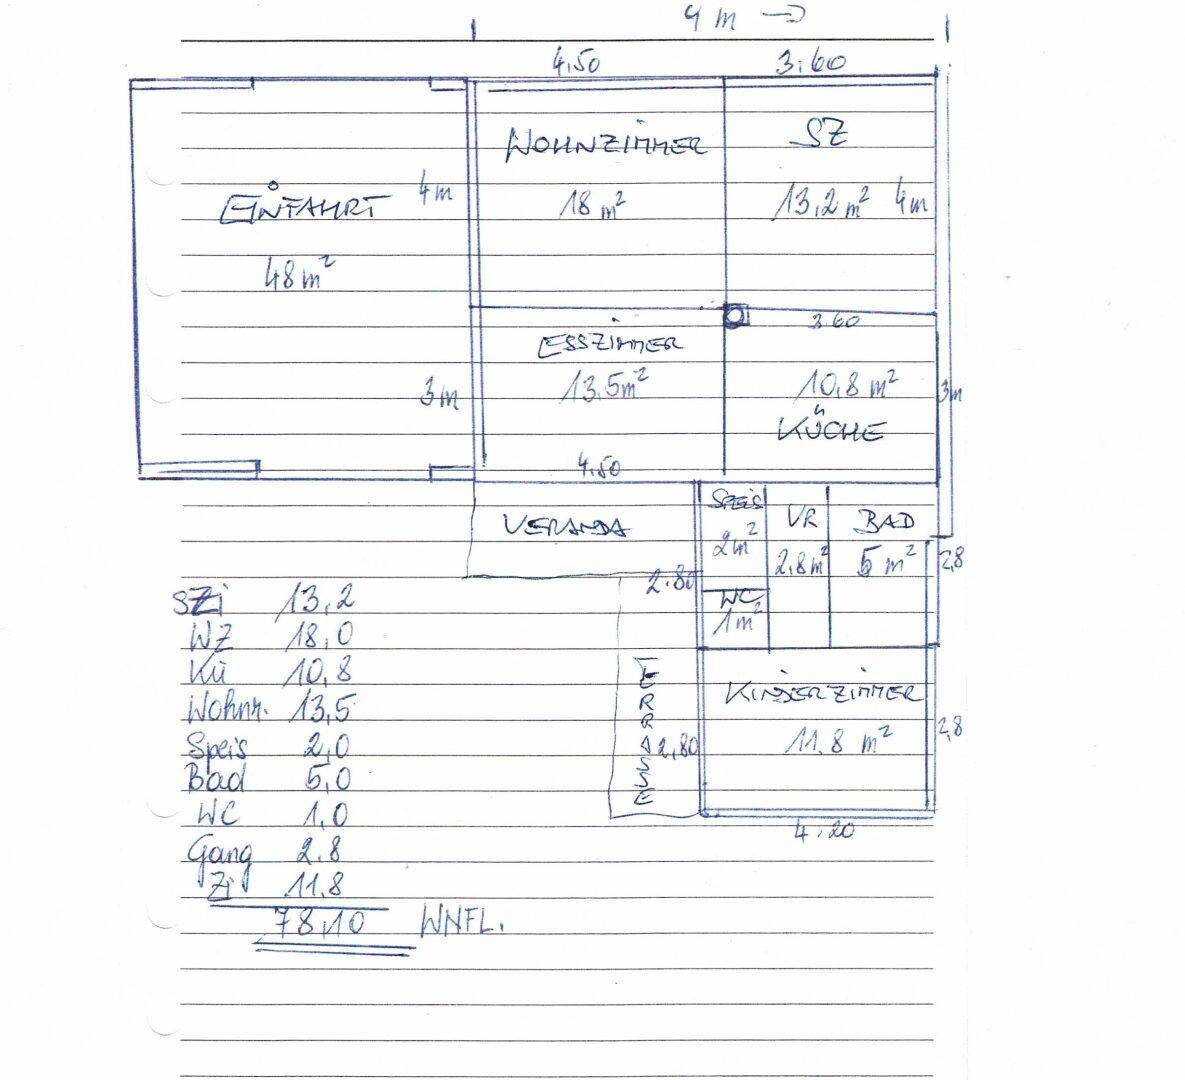 9 m →
4,50 3,60
WOHNZIMMER SZ
EINFAHRT 4m 18 m² 13,2 m² 4m
48 m²
3,60
ESSZIMMER
3m 13,5m² 10,8 m² 3m
KÜCHE
4,50
VERANDA SPEIS VR BAD
2m² 2,8m² 5 m² 2,8
2.80 WC
1m²
SZi 13,2
WZ 18,0
Kü 10,8
Wohnr. 13,5
Speis 2,0
Bad 5,0
WC 1,0
Gang 2.8
Zi 11,8
78,10 WNFL.
TERRASSE
KINDERZIMMER
2,80 11,8 m² 2,8
4,20